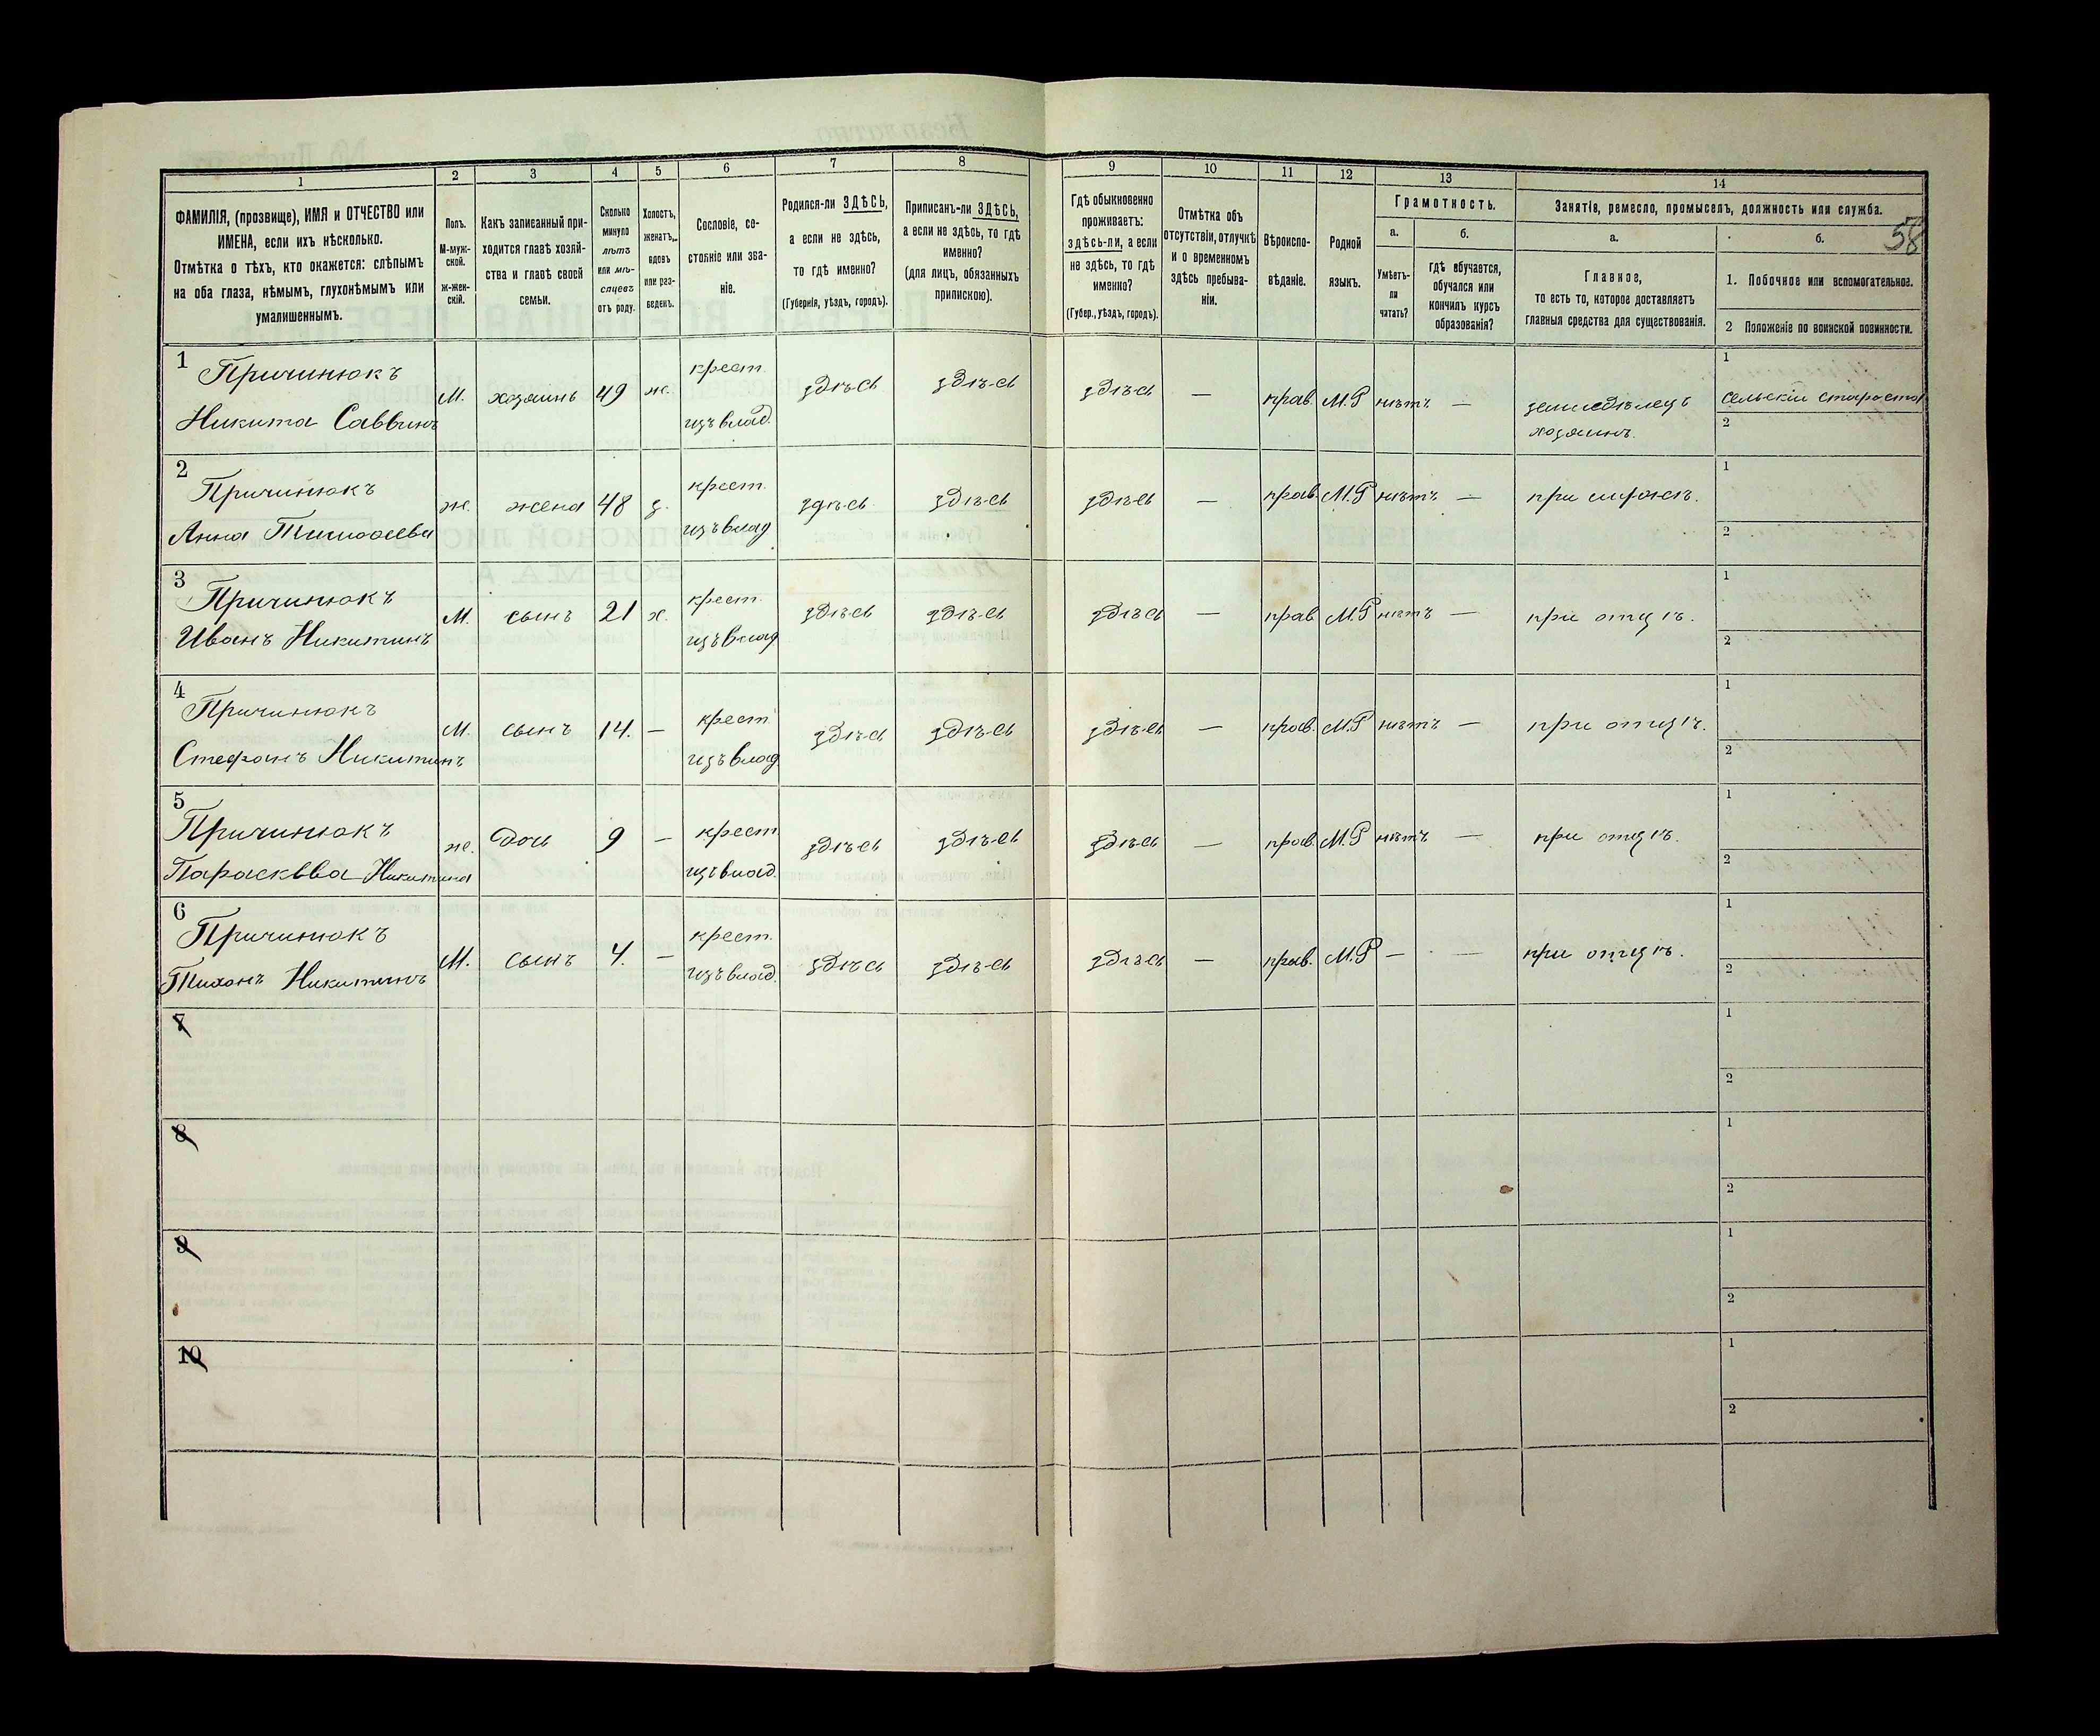 58
1 2 3 4 5 6 7 8 9 10 11 12 13 14
ФАМИЛІЯ, (прозвище), ИМЯ и ОТЧЕСТВО или
ИМЕНА, если ихъ нѣсколько.
Отмѣтка о тѣхъ, кто окажется: слѣпымъ
на оба глаза, нѣмымъ, глухонѣмымъ или
умалишеннымъ.
Полъ.
М-муж-
ской.
ж-жен-
скій.
Какъ записанный при-
ходится главѣ хозяй-
ства и главѣ своей
семьи.
Сколько
минуло
лѣтъ
или мѣ-
сяцевъ
отъ роду.
Холостъ,
женатъ,
вдовъ
или раз-
веденъ.
Сословіе, со-
стояніе или зва-
ніе.
Родился-ли ЗДѢСЬ,
а если не здѣсь,
то гдѣ именно?
(Губернія, уѣздъ, городъ).
Приписанъ-ли ЗДѢСЬ,
а если не здѣсь, то гдѣ
именно?
(для лицъ, обязанныхъ
припискою).
Гдѣ обыкновенно
проживаетъ:
здѣсь-ли, а если
не здѣсь, то гдѣ
именно?
(Губер., уѣздъ, городъ).
Отмѣтка объ
отсутствіи, отлучкѣ
и о временномъ
здѣсь пребыва-
ніи.
Вѣроиспо-
вѣданіе.
Родной
языкъ.
Грамотность.
а. б.
Умѣетъ-
ли
читать?
гдѣ обучается,
обучался или
кончилъ курсъ
образованія?
Занятіе, ремесло, промыселъ, должность или служба.
а. б.
Главное,
то есть то, которое доставляетъ
главныя средства для существованія.
1. Побочное или вспомогательное.
2 Положеніе по воинской повинности.
1 Причинюкъ крест. 1
М. хозяинъ 49 ж. здѣсь здѣсь здѣсь — прав. М.Р нѣтъ — земледѣлецъ сельскій староста
Никита Саввинъ изъ влад. хозяинъ. 2
2 Причинюкъ крест. 1
ж. жена 48 з. здѣсь здѣсь здѣсь — прав. М.Р нѣтъ — при мужѣ.
Анна Тимофеева изъ влад 2
3 Причинюкъ крест. 1
М. сынъ 21 х. здѣсь здѣсь здѣсь — прав М.Р нѣтъ — при отцѣ.
Иванъ Никитинъ изъ влад 2
4 Причинюкъ крест. 1
М. сынъ 14. — здѣсь здѣсь здѣсь — прав. М.Р нѣтъ — при отцѣ.
Стефанъ Никитинъ изъ влад 2
5 Причинюкъ крест. 1
ж. дочь 9 — здѣсь здѣсь здѣсь — прав. М.Р нѣтъ — при отцѣ.
Параскѣва Никитина изъ влад. 2
6 Причинюкъ крест. 1
М. сынъ 4. — здѣсь здѣсь здѣсь — прав. М.Р — — при отцѣ.
Тихонъ Никитинъ изъ влад. 2
7 1
2
8 1
2
9 1
2
10 1
2